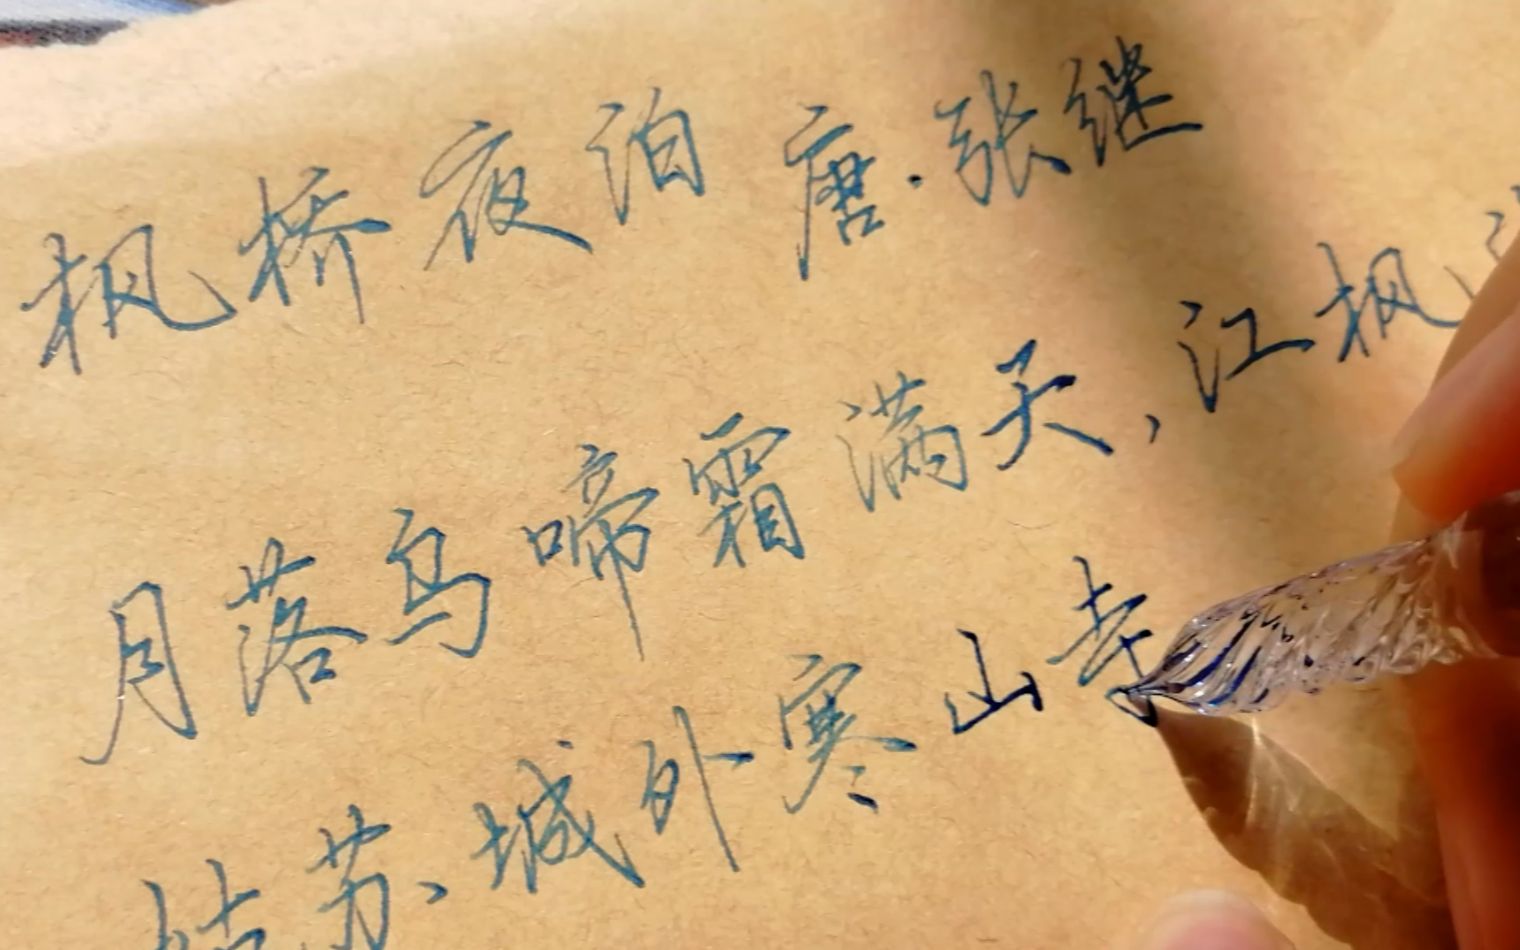 枫桥夜泊 唐·张继
月落乌啼霜满天,江枫
姑苏城外寒山寺